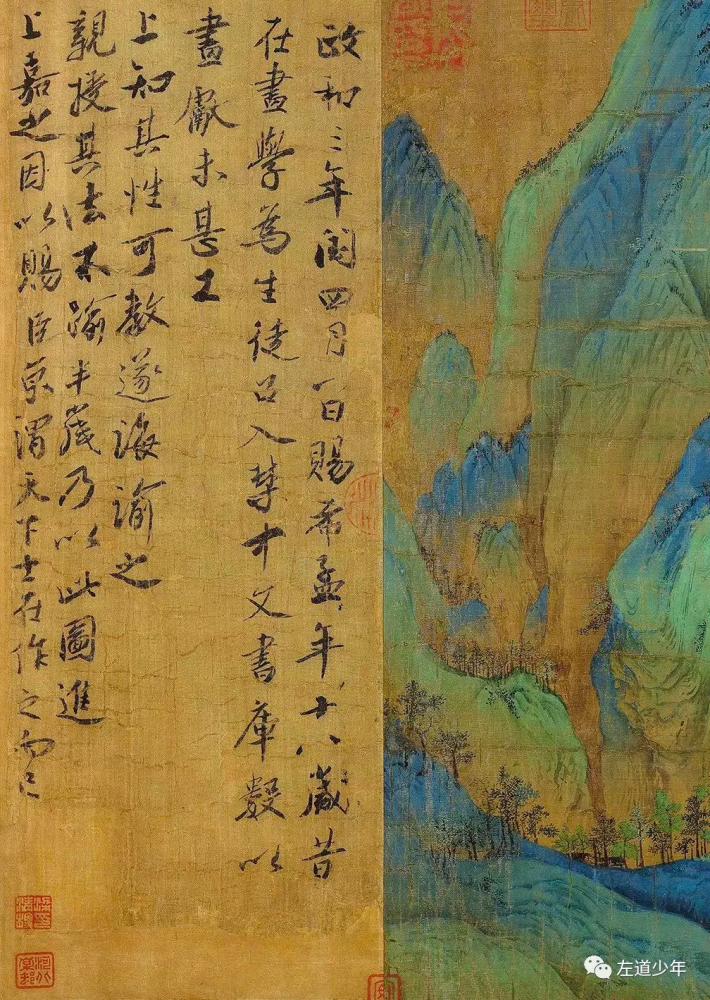 政和三年閏四月一日賜希孟年十八歲昔
在畫學為生徒召入禁中文書庫數以
畫獻未甚工
上知其性可教遂誨諭之
親授其法不踰半歲乃以此圖進
上嘉之因以賜臣京謂天下士在作之而已
左道少年